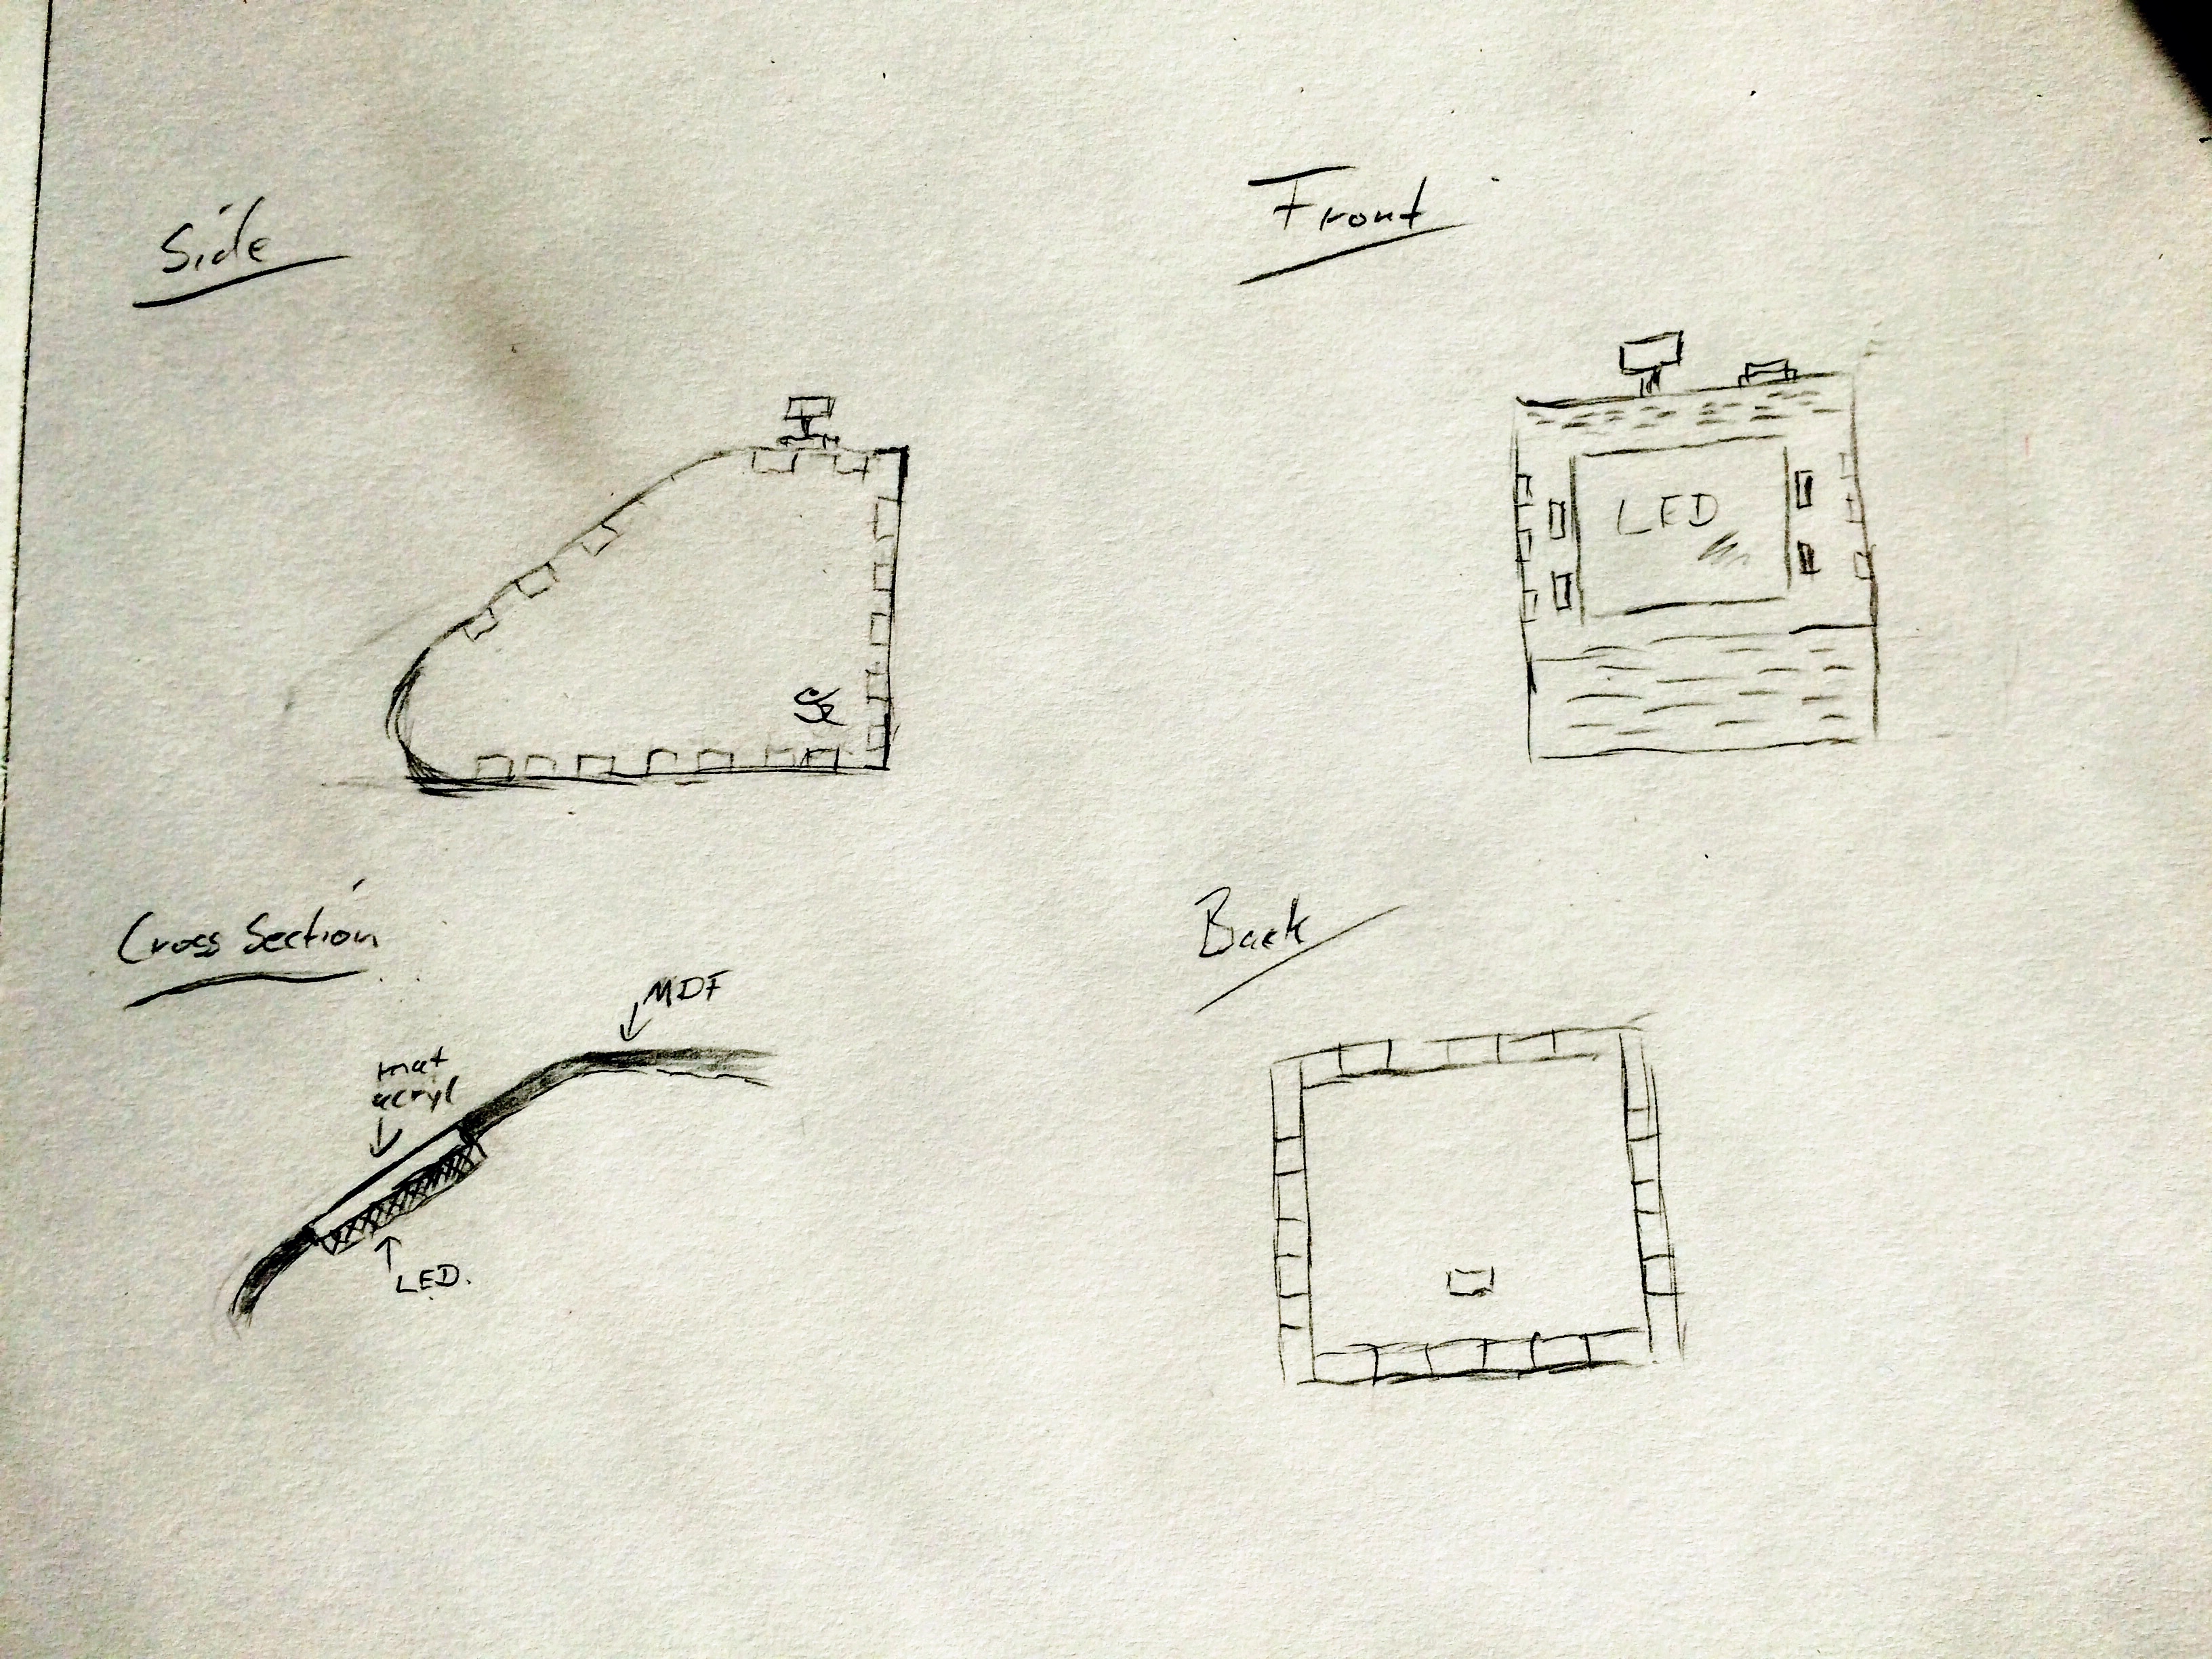 Side
Front
LED
Cross Section
MDF
mat
acryl
LED.
Back